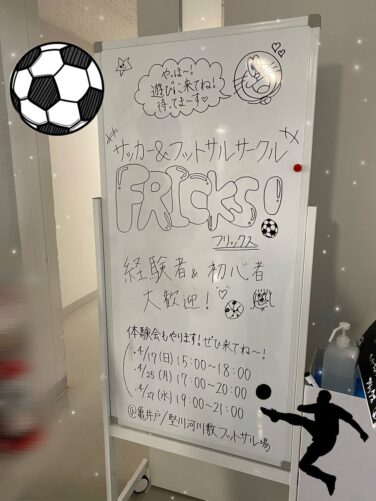 やっほ〜!
遊びに来てね!
待ってま〜す♡
サッカー&フットサルサークル
FRICKS!
フリックス
経験者&初心者
大歓迎!
体験会もやります!ぜひ来てね〜!
・4/17(日)15:00〜18:00
・4/25(月)17:00〜20:00
・4/27(水)19:00〜21:00
@亀井戸/堅川河川敷フットサル場